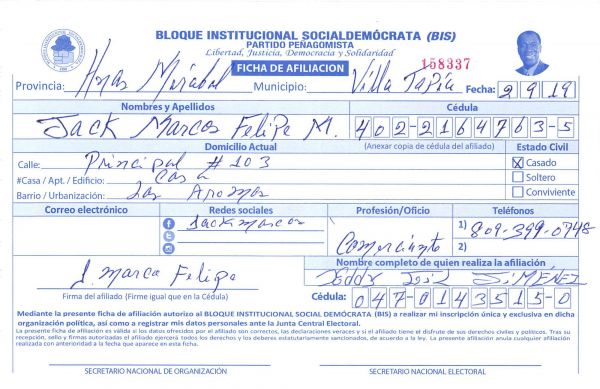 BLOQUE INSTITUCIONAL SOCIALDEMÓCRATA (BIS)
PARTIDO PEÑAGOMISTA
Libertad, Justicia, Democracia y Solidaridad
158337
FICHA DE AFILIACION
Provincia: Hnas Mirabal Municipio: Villa Tapia Fecha: 2 9 19
Nombres y Apellidos Cédula
Jack Marcos Felipe M. 402-2164763-5
Domicilio Actual (Anexar copia de cédula del afiliado) Estado Civil
Calle: Principal # 103 X Casado
#Casa / Apt. / Edificio: Casa Soltero
Barrio / Urbanización: Las Aromas Conviviente
Correo electrónico Redes sociales Profesión/Oficio Teléfonos
Jackmarcos 1) 809-399-0748
Comerciante 2)
Nombre completo de quien realiza la afiliación
J. Marco Felipe JIMÉNEZ
Firma del afiliado (Firme igual que en la Cédula) Cédula: 047-0143515-0
Mediante la presente ficha de afiliación autorizo al BLOQUE INSTITUCIONAL SOCIAL DEMÓCRATA (BIS) a realizar mi inscripción única y exclusiva en dicha
organización política, así como a registrar mis datos personales ante la Junta Central Electoral.
La presente ficha de afiliación es válida si los datos ofrecidos por el afiliado son correctos, las declaraciones veraces y si el afiliado tiene el disfrute de sus derechos civiles y políticos. Tras su
recepción, sello y firmas autorizadas el afiliado ejercerá todos los derechos y los deberes estatutariamente sancionados, de acuerdo a la ley. La presente afiliación anula cualquier afiliación
realizada con anterioridad a la fecha que aparece en esta ficha.
SECRETARIO NACIONAL DE ORGANIZACIÓN SECRETARIO NACIONAL ELECTORAL